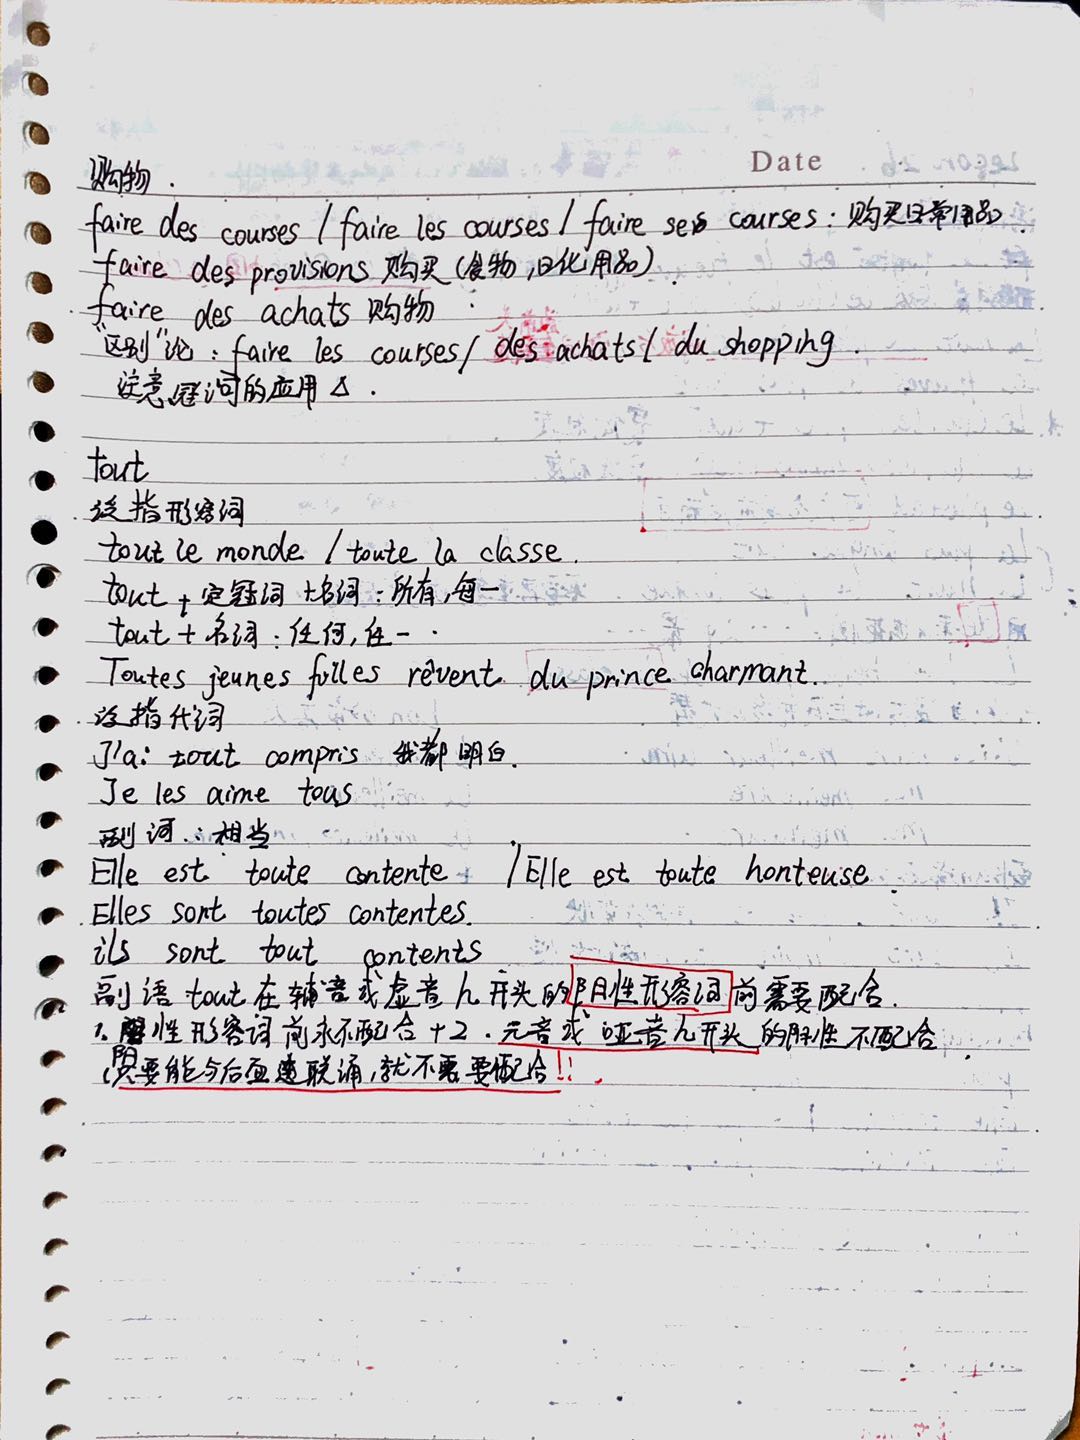 Date
购物.
faire des courses / faire les courses / faire ses courses: 购买日常用品
faire des provisions 购买(食物,日化用品)
faire des achats 购物
"区别"论: faire les courses/ des achats/ du shopping.
注意冠词的应用△.
tout
泛指形容词
tout le monde / toute la classe.
tout + 定冠词 + 名词: 所有,每一
tout + 名词: 任何,任一.
Toutes jeunes filles rêvent du prince charmant.
泛指代词
J'ai tout compris 我都明白.
Je les aime tous
副词: 相当
Elle est toute contente / Elle est toute honteuse.
Elles sont toutes contentes.
ils sont tout contents
副语 tout 在辅音或虚音h开头的阴性形容词前需要配合.
1. 阳性形容词前永不配合 + 2. 元音或哑音h开头的阴性不配合
只要能与后面连联诵,就不需要配合!!.